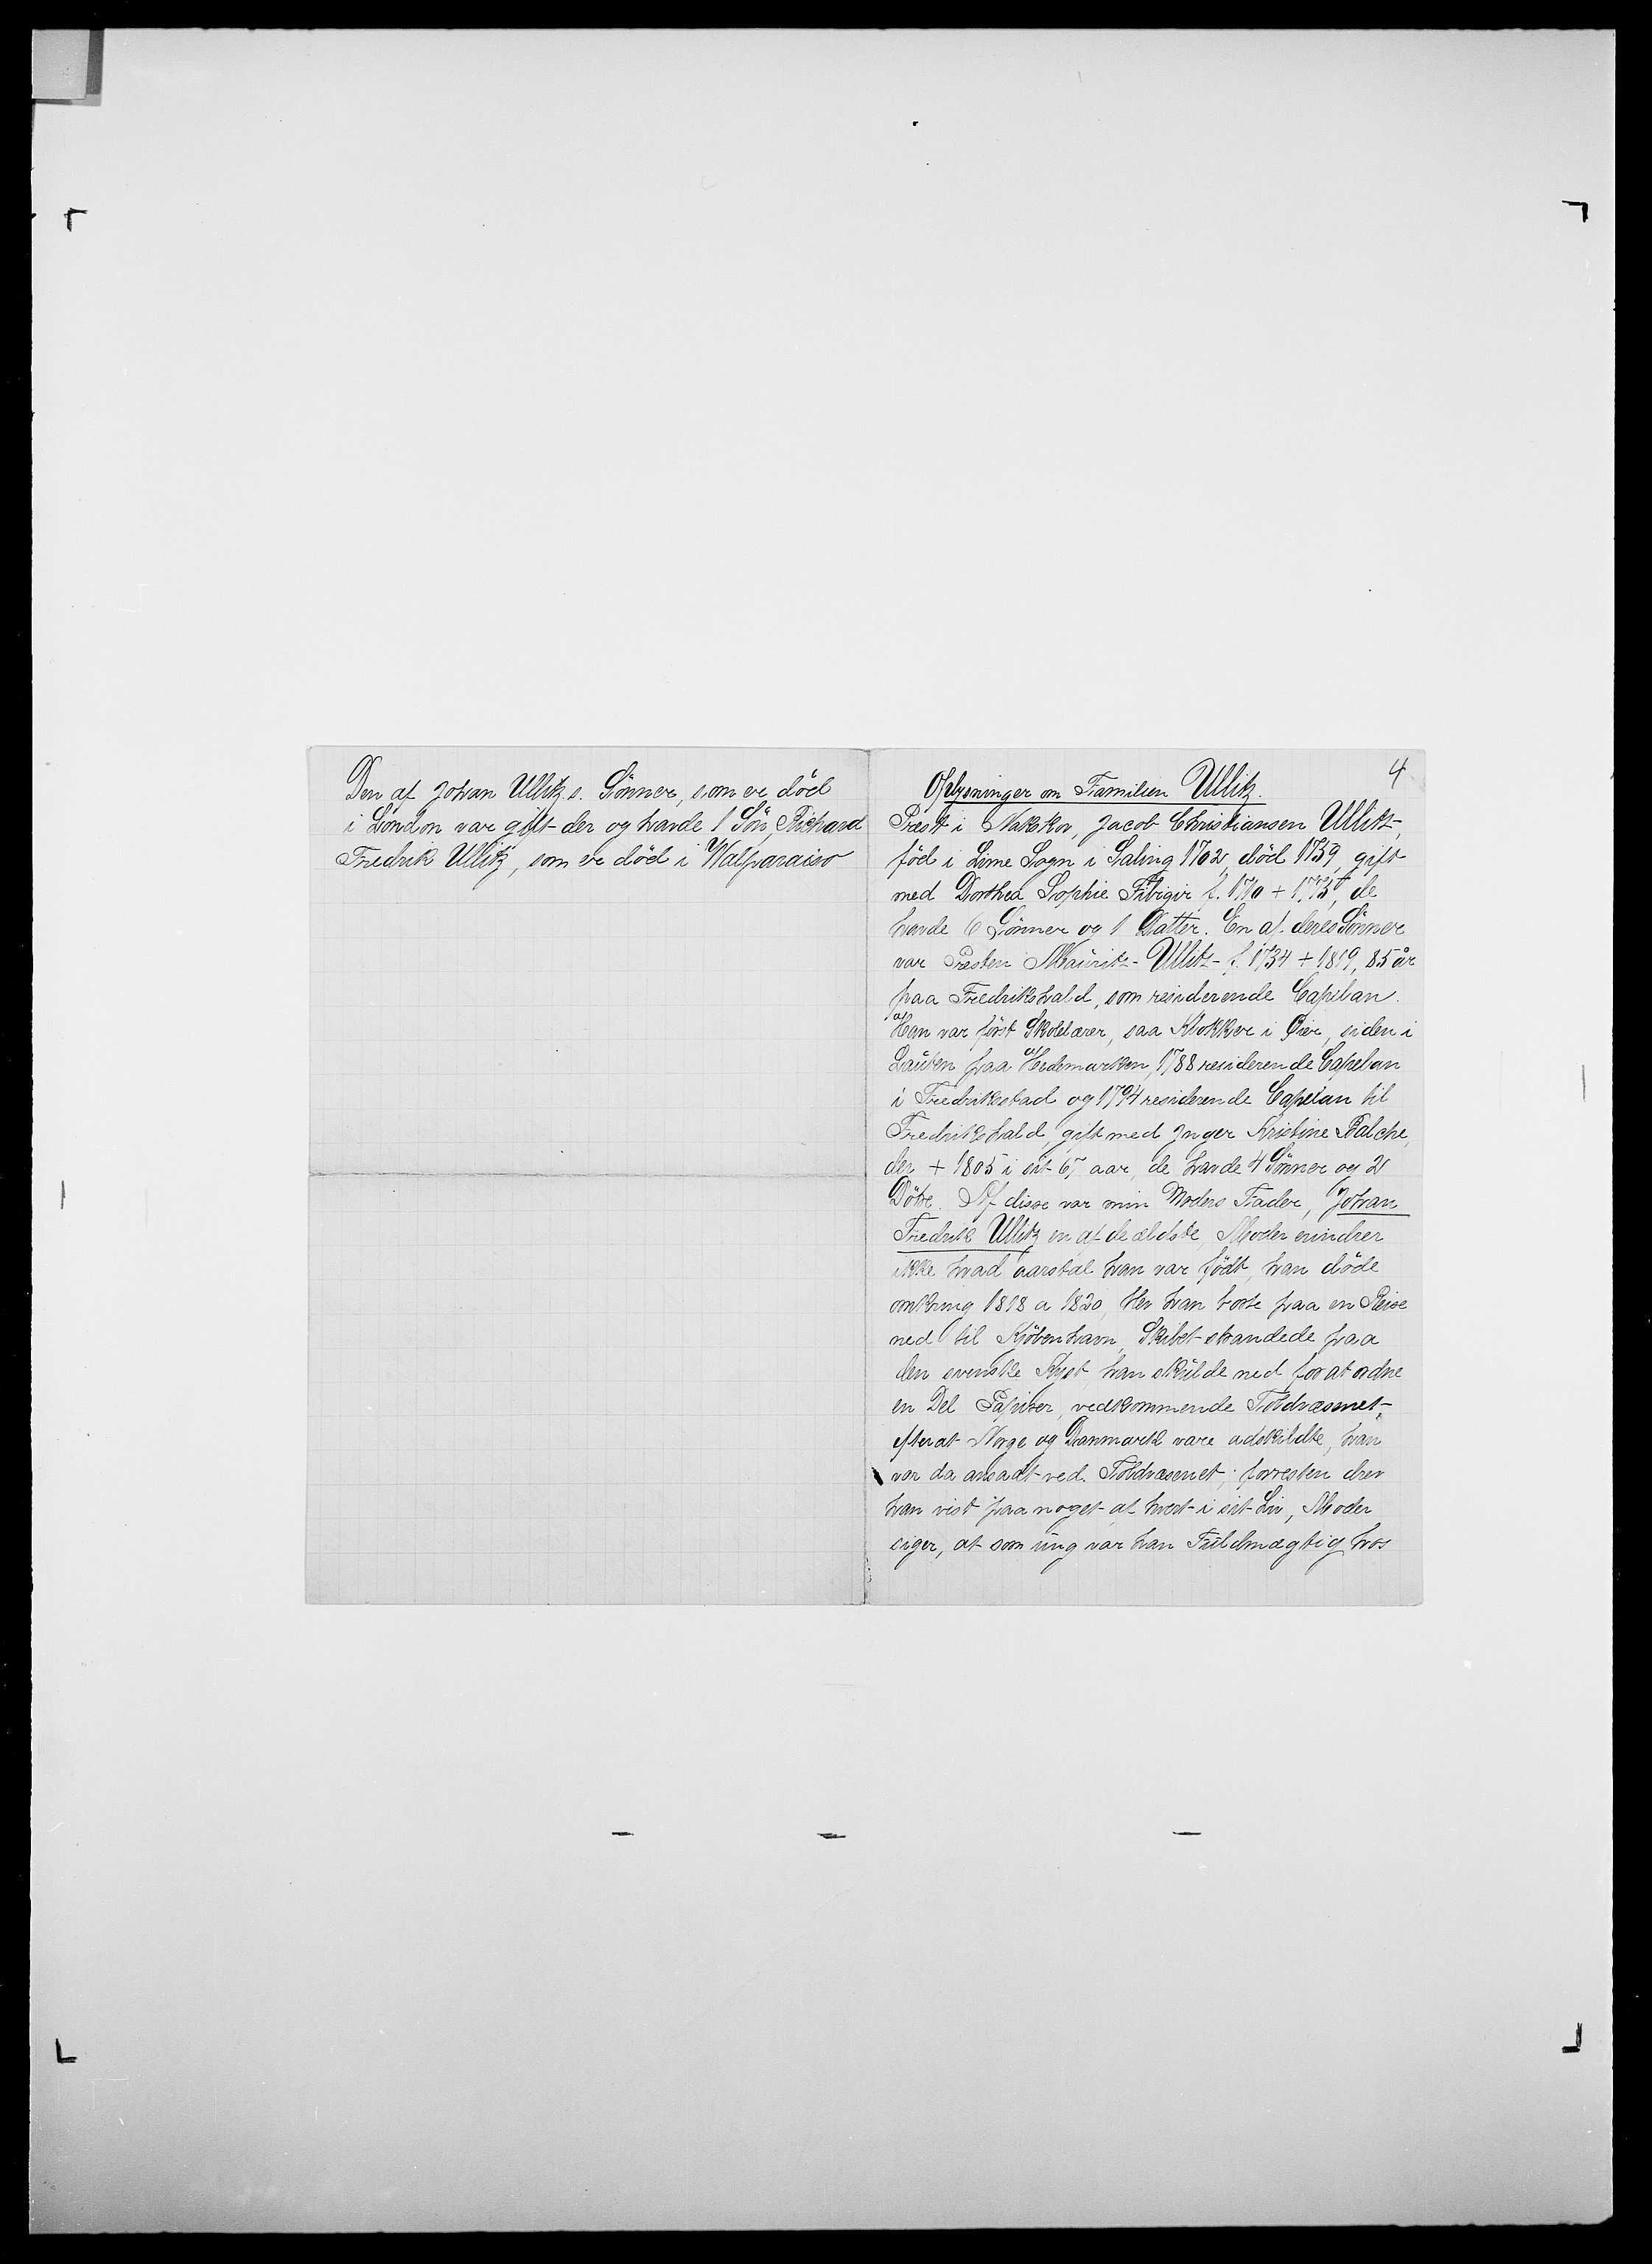 Den af Johan Ullitz s. Sönner, som er död
i London var gift der og havde 1 Sön, Richard
Fredrik Ullitz, som er död i Walparaiso
4
Oplysninger om Familien Ullitz.
Præst i Nakskov, Jacob Christiansen Ullitz,
föd i Lime Sogn i Saling 1702, död 1759, gift
med Dorthea Sophie Fibigir f. 1710 + 1775, de
havde 6 Sönner og 1 Datter. En af deres Sönner
var Præsten Mauritz Ullitz f. 1734 + 1819, 85 år
paa Fredrikshald, som residerende Capelan.
Han var först Skolelærer, saa Klokker i Öier, siden i
Lauten paa Hedemarken, 1788 residerende Capelan
i Fredrikstad og 1794 residerende Capelan til
Fredrikshald, gift med Inger Kristine Balche,
der + 1805 i sit 67 aar, de havde 4 Sönner og 2
Dötre. Af disse var min Moders Fader, Johan
Fredrik Ullitz en af de ældste, Moder erindrer
ikke hvad aarstal han var födt, han döde
omkring 1818 a 1820, blev han borte paa en Reise
ned til Kjöbenhavn, Skibet strandede paa
den svenske Kyst, han skulde ned for at ordne
en Del Papirer, vedkommende Toldvæsnet,
efterat Norge og Danmark vare adskildte, han
var da ansadt ved Toldvæsenet; forresten drev
han vist paa noget af hvert i sit Liv, Moder
siger, at som ung var han Fuldmægtig hos